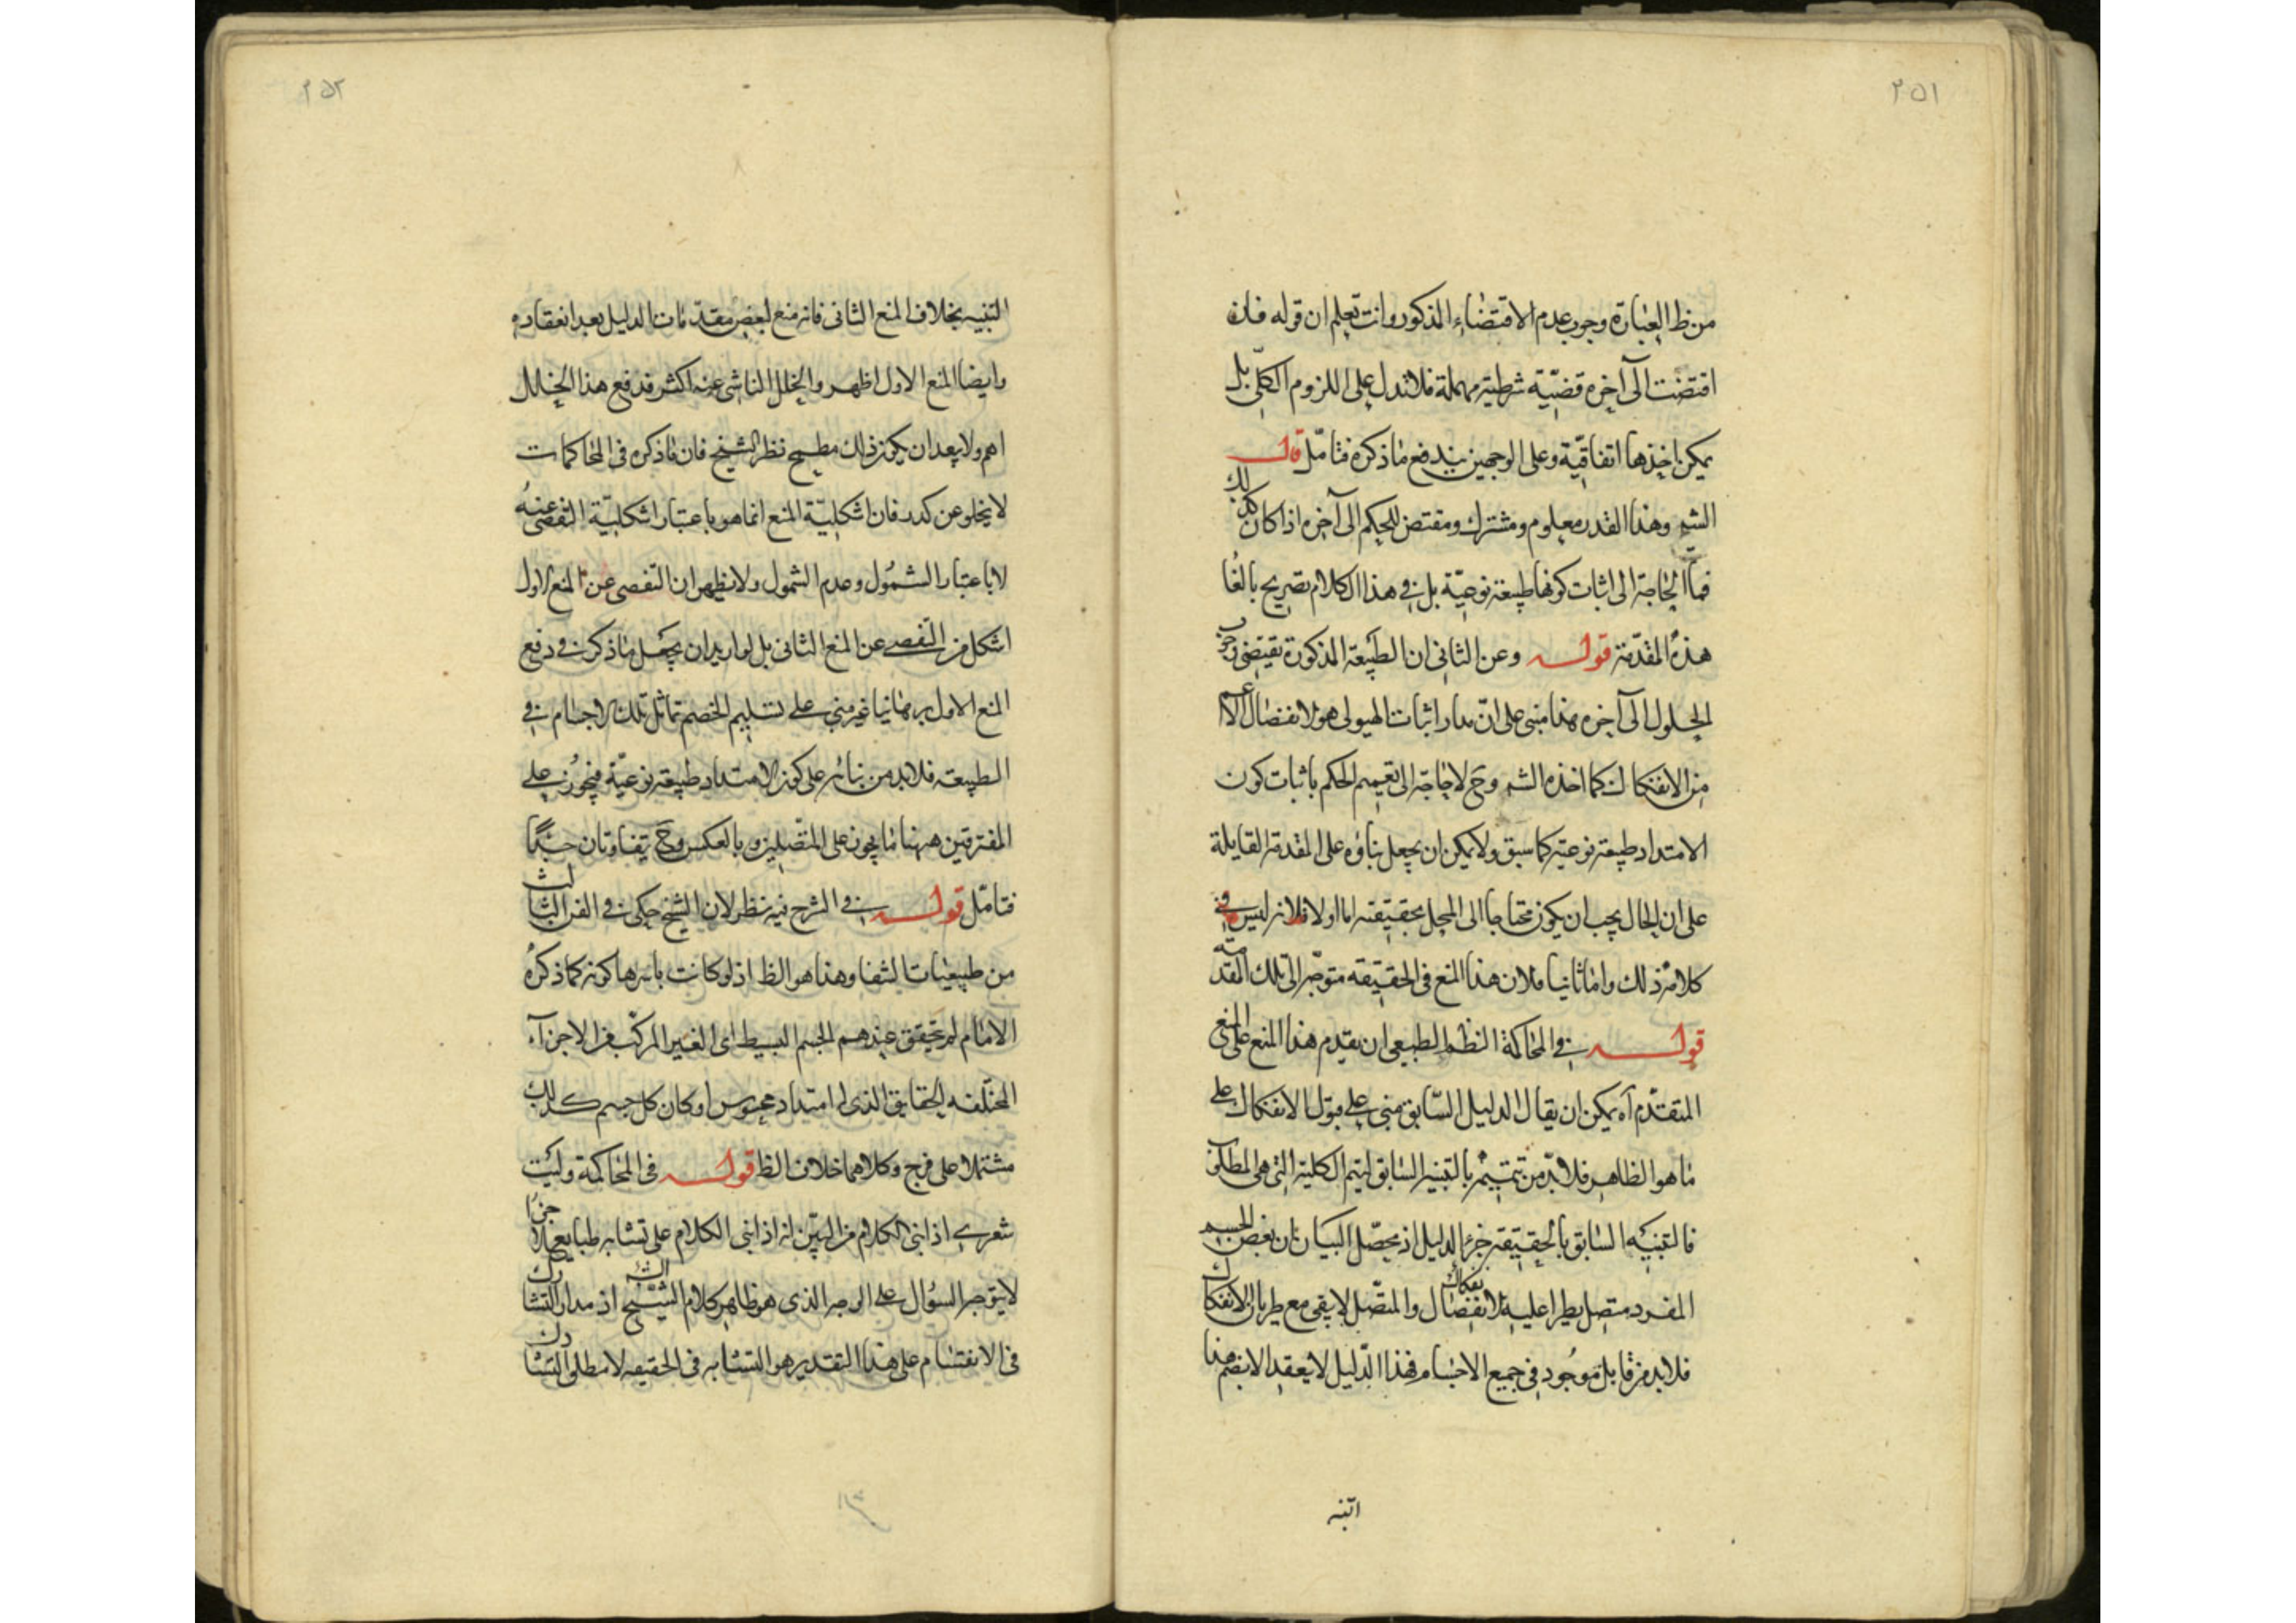 ٢٥١
من ظ العبارة وجوب عدم الاقتضاء المذكور وانت تعلم ان قوله فان
اقتضت الى آخره قضيّة شرطية مهملة فلا تدل على اللزوم الكلّى بل
يمكن اخذها اتفاقيّة وعلى الوجهين يندفع ما ذكره فتامّل قال
الشم وهذا القدر معلوم ومشترك ومقتض للحكم الى آخره اذا كان كذلك
فما الحاجة الى اثبات كونها طبيعة نوعيّة بل فى هذا الكلام تصريح بالغا
هذه المقدّمة قوله وعن الثانى ان الطبيعة المذكورة تقيضى
الحلول الى آخره هذا مبنى على انّ مدار اثبات الهيولى هو الانفصال الاعم
من الانفكاك كما اخذه الشم وح لا حاجة الى تعميم الحكم باثبات كون
الامتداد طبيعة نوعية كما سبق ولا يمكن ان يجعل بناؤه على المقدمة القايلة
على ان الحال يجب ان يكون محتاجا الى المحل بحقيقته اما اولا فلانه ليس فى
كلامه ذلك واما ثانيا فلان هذا المنع فى الحقيقه متوجّه الى تلك المقدمة
قوله فى المحاكمة النظم الطبيعى ان يقدم هذا المنع على المنع
المتقدّم آه يمكن ان يقال الدليل السّابق مبنى على قبول الانفكاك على
ما هو الظاهر فلا بدّ من تتميمه بالتنبيه السابق ليتم الكلية التى هى المطلوب
فالتنبيه السّابق بالحقيقة جزء الدليل اذ محصّل البيان ان بعض الجسم
المفرد متصل يطرا عليه الانفصال انفكاك والمتّصل لا يبقى مع طريان الانفكاك
فلا بد من قابل موجود فى جميع الاجسام فهذا الدّليل لا يعقد الا بضم هذا
اتنبه
٢٥٢
التنبيه بخلاف المنع الثانى فانه منع لبعض مقدّمات الدليل بعد انعقاده
وايضا المنع الاول اظهر والخلل الناشى عنه اكثر فدفع هذا الخلل
اهم ولا يبعد ان يكون ذلك مطمح نظر الشيخ فان ما ذكره فى المحاكمات
لا يخلو عن كدر فان اشكليّة المنع انما هو باعتبار اشكليّة التفصى عنه
لا باعتبار الشمُول وعدم الشمول ولا يظهر ان التفصى عن المنع الاول
اشكل من التفصى عن المنع الثانى بل لو اريد ان يجعل ما ذكر فى دفع
المنع الاول برهانيا غير مبنى على تسليم الخصم تماثل تلك الاجسام فى
الطبيعة فلا بد من بنائه على كون الامتداد طبيعة نوعيّة فيجوز على
المفترقين ههنا ما يجوز على المتّصلين وبالعكس وح يتفاوتان حينئذ
فتامّل قوله فى الشرح فيه نظر لان الشيخ حكى فى الفن الثالث
من طبيعيات الشفا وهذا هو الظ اذ لو كانت باسرها كونه كما ذكره
الامام لم يتحقق عندهم الجسم البسيط اى الغير المركب من الاجزاء
المختلفه الحقايق الذى له امتداد محسوس او كان كل جسم كذلك
مشتملا على فرج وكلاهما خلاف الظ قوله فى المحاكمة وليت
شعرى اذا بنى الكلام من البيّن انه اذا بنى الكلام على تشابه طبايع الاجزا
لا يتوجه السؤال على الوجه الذى هو ظاهر كلام الشيخ اذ مدار التشارك
فى الانقسام على هذا التقدير هو التشابه فى الحقيقه لا مطلق التشارك